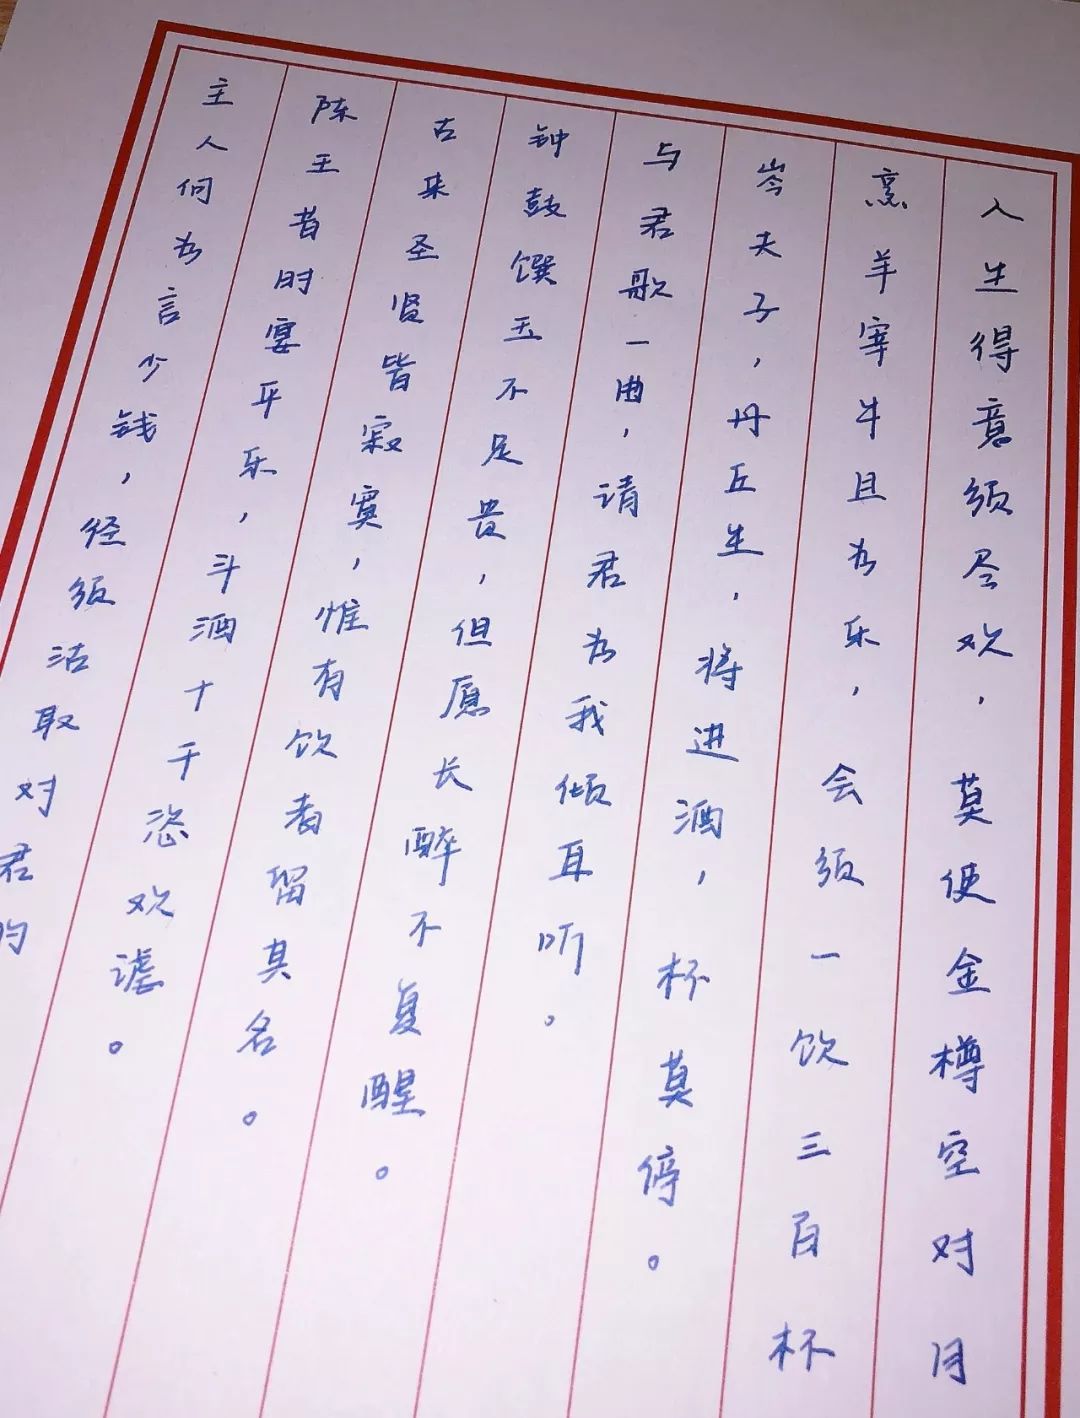 人生得意须尽欢，莫使金樽空对月
烹羊宰牛且为乐，会须一饮三百杯
岑夫子，丹丘生，将进酒，杯莫停。
与君歌一曲，请君为我倾耳听。
钟鼓馔玉不足贵，但愿长醉不复醒。
古来圣贤皆寂寞，惟有饮者留其名。
陈王昔时宴平乐，斗酒十千恣欢谑。
主人何为言少钱，径须沽取对君酌